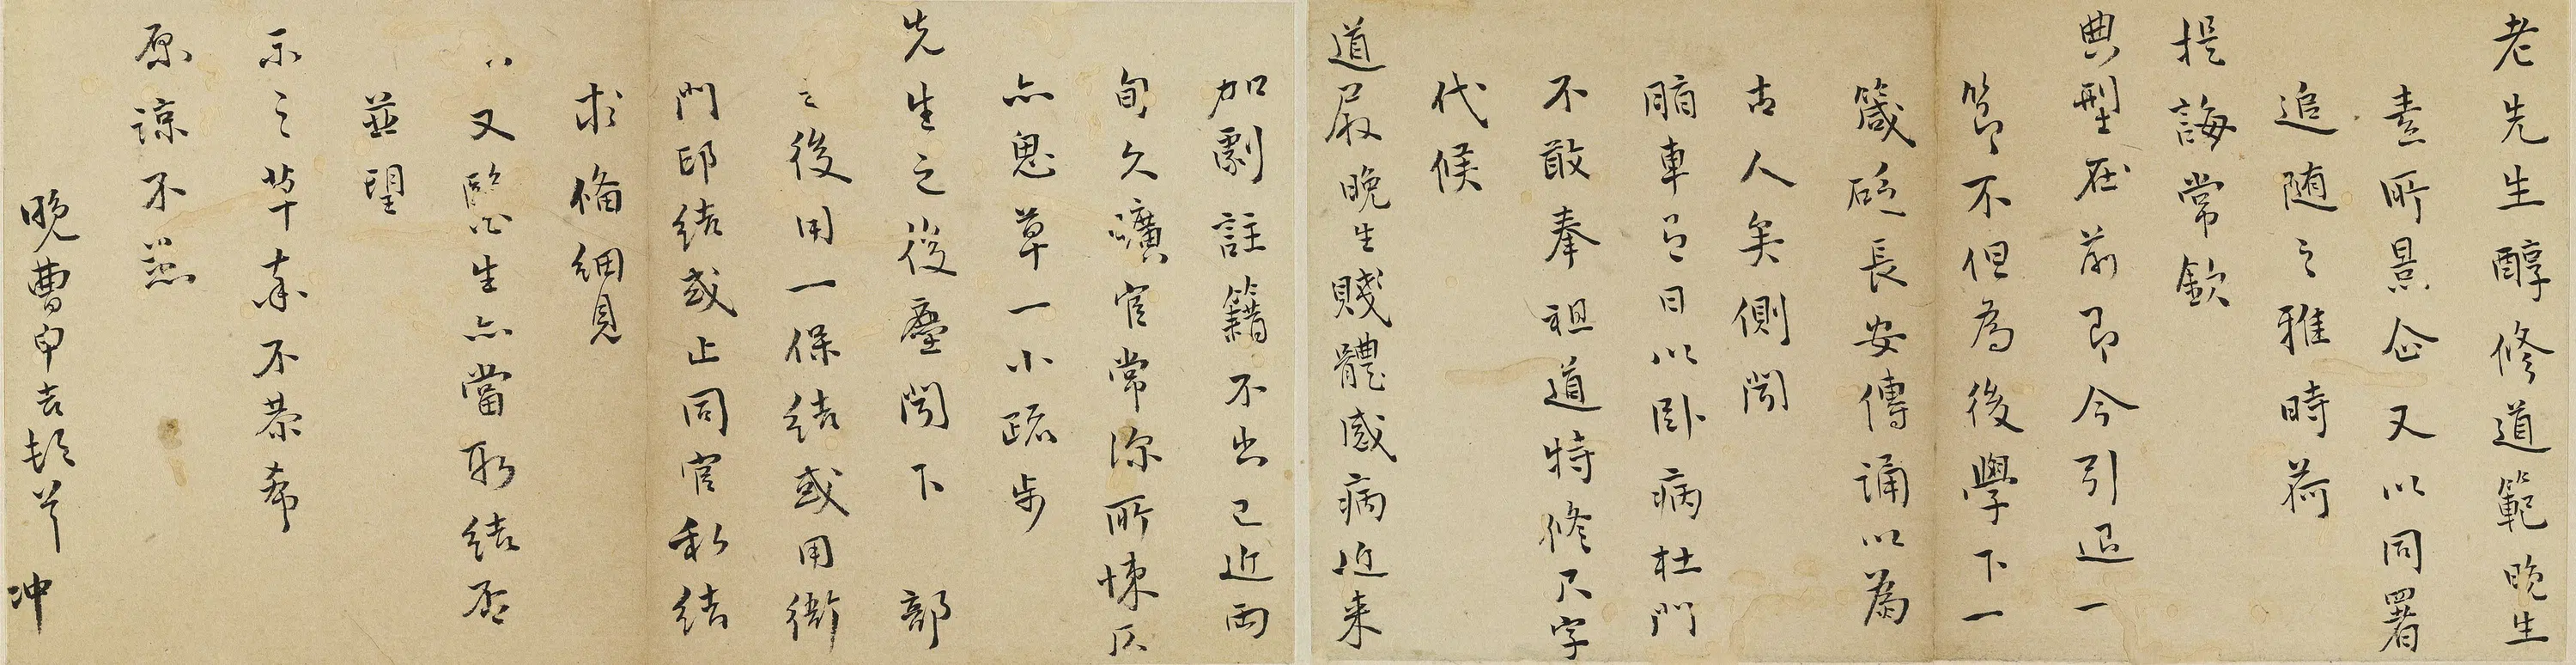 老先生醇修道範晚生
素所景企又以同署
追随之雅時荷
提誨常欽
典型在前即今引退一
節不但為後學下一
箴砭長安傳誦以為
古人矣側聞
脂車有日以卧病杜門
不敢奉祖道特修尺字
代候
道履晚生賤體感病近来
加劇註籍不出已近両
旬久曠官常深所悚仄
亦思草一小疏步
先生之後塵聞下部
之後用一保結或用衙
門印结或止同官私結
求偹細見
又醫生亦當取结否
並望
示之草率不恭希
原諒不盡
晚曹申吉頓首 冲